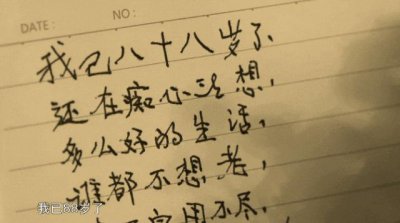 DATE: NO:
我已八十八岁了、
还在痴心注想，
多么好的生活，
谁都不想老，
用不尽，
我已88岁了